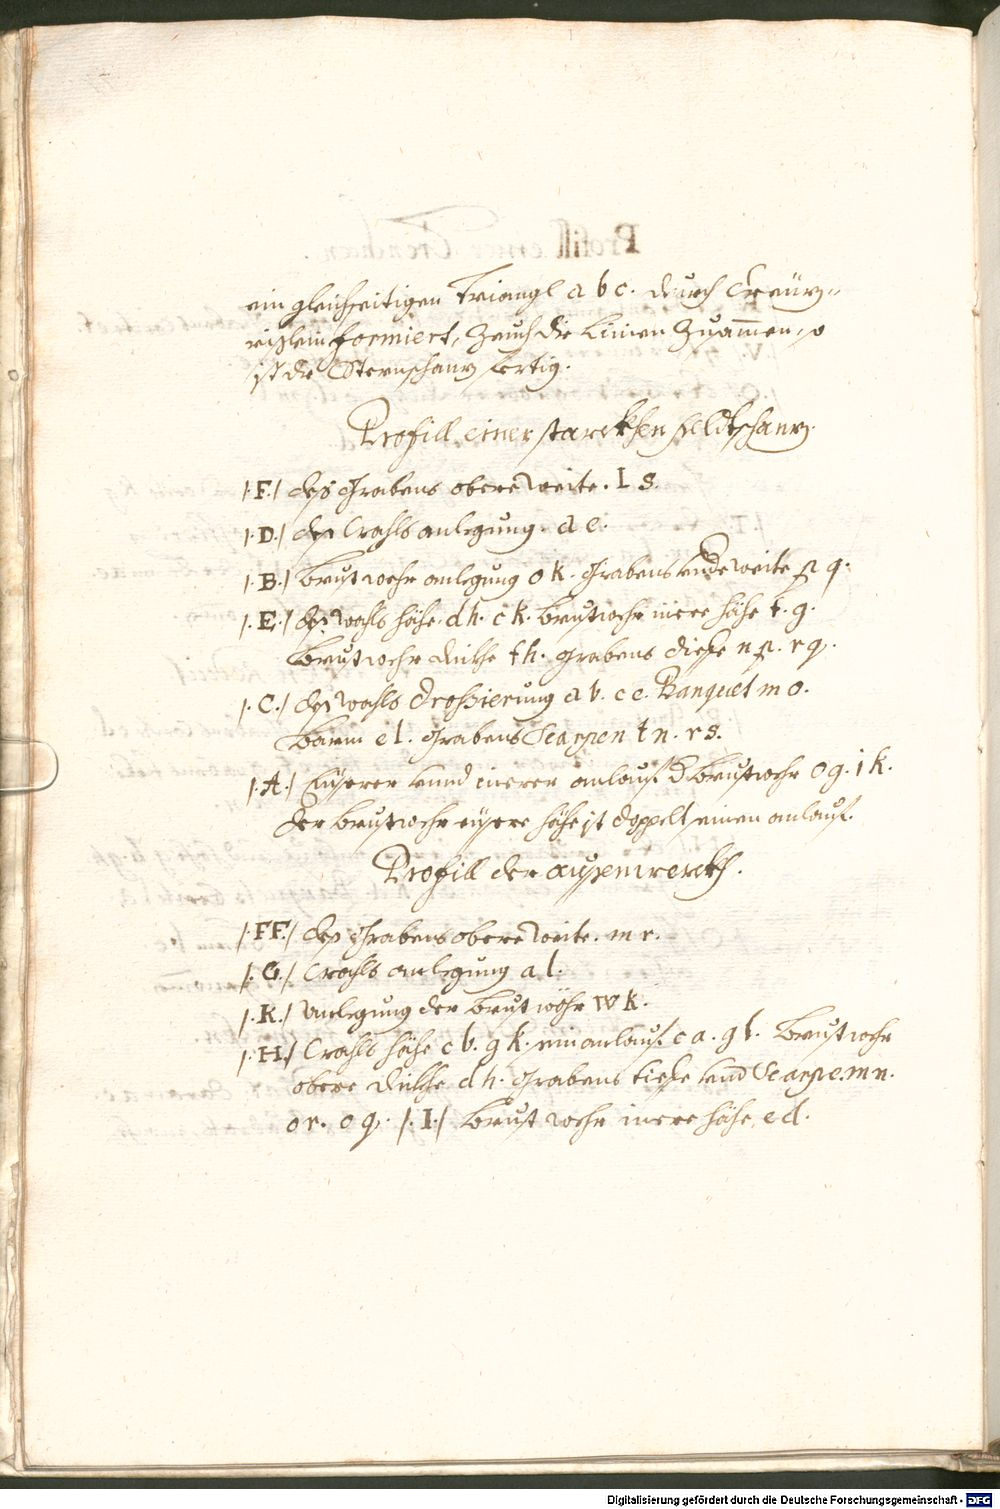 ein gleichseitigen Triangl a b c. durch Creütz=
rislein formiert, Zeuch die Linien Zusamen, so
ist die Sternschantz fertig.
Profill einer starckhen Feldtschantz.
/.F./ deß Grabens obere Weite. l s.
/.D./ deß Wahls anlegung. a e.
/.B./ Brustwehr anlegung o k. Grabens undere weite p q.
/.E./ deß Wahls höhe. d h. c k. Brustwehr inere höhe t. g.
Brustwehr dickhe f h. Grabens dieffe n p. r q.
/.C./ deß Wahls drossierung a b. c e. Banquet m o.
Barm e l. Grabens Scarpen t n. r s.
/.A./ Eusserer unnd inerer anlauf d. Brustwehr o g. i k.
der Brustwehr eüsere höhe ist doppelt seinen anlauf.
Profill der aussenwerckh.
/.FF./ deß Grabens obere Weite. m r.
/.G./ Wahls anlegung a l.
/.K./ Anlegung der Brustwöhr w k.
/.H./ Wahls höhe c b. g k. sein anlauf c a. g l. Brustwehr
obere dickhe d h. Grabens tieffe und Scarpe. m n.
o r. o q. /.I./ Brustwehr inere höhe e d.
Digitalisierung gefördert durch die Deutsche Forschungsgemeinschaft - DFG